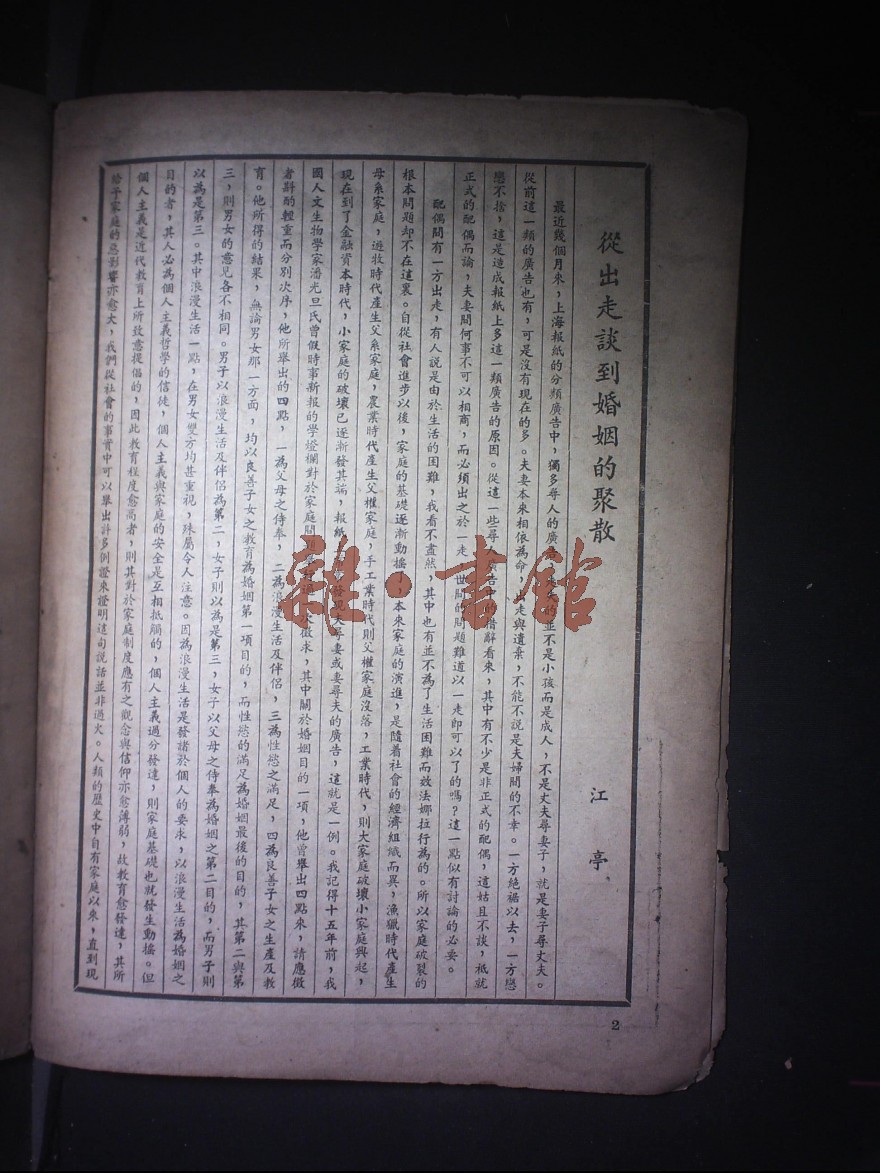 從出走談到婚姻的聚散
江亭
最近幾個月來，上海報紙的分類廣告中，獨多尋人的廣告，走失的並不是小孩而是成人，不是丈夫尋妻子，就是妻子尋丈夫。
從前這一類的廣告也有，可是沒有現在的多。夫妻本來相依為命，出走與遺棄，不能不說是夫婦間的不幸。一方絶裾以去，一方戀
戀不捨，這是造成報紙上多這一類廣告的原因。從這一些尋人廣告中的措辭看來，其中有不少是非正式的配偶，這姑且不談，祗就
正式的配偶而論，夫妻間何事不可以相商，而必須出之於一走，世間的問題難道以一走即可以了的嗎？這一點似有討論的必要。
配偶間有一方出走，有人說是由於生活的困難，我看不盡然，其中也有並不為了生活困難而效法娜拉行為的。所以家庭破裂的
根本問題却不在這裏。自從社會進步以後，家庭的基礎逐漸動搖了，本來家庭的演進，是隨着社會的經濟組織而異，漁獵時代產生
母系家庭，遊牧時代產生父系家庭，農業時代產生父權家庭，手工業時代則父權家庭沒落，工業時代，則大家庭破壞小家庭興起，
現在到了金融資本時代，小家庭的破壞已逐漸發其端，報紙發現夫尋妻或妻尋夫的廣告，這就是一例。我記得十五年前，我
國人文生物學家潘光旦氏曾假時事新報的學燈欄對於家庭問題次徵求，其中關於婚姻目的一項，他曾舉出四點來，請應徵
者斟酌輕重而分別次序，他所舉出的四點，一為父母之侍奉，二為浪漫生活及伴侶，三為性慾之滿足，四為良善子女之生產及教
育。他所得的結果，無論男女那一方面，均以良善子女之教育為婚姻第一項目的，而性慾的滿足為婚姻最後的目的，其第二與第
三，則男女的意見各不相同。男子以浪漫生活及伴侶為第二，女子則以為是第三，女子以父母之侍奉為婚姻之第二目的，而男子則
以為是第三。其中浪漫生活一點，在男女雙方均甚重視，殊屬令人注意。因為浪漫生活是發諸於個人的要求，以浪漫生活為婚姻之
目的者，其人必為個人主義哲學的信徒，個人主義與家庭的安全是互相抵觸的，個人主義過分發達，則家庭基礎也就發生動搖。但
個人主義是近代教育上所致意提倡的，因此教育程度愈高者，則其對於家庭制度應有之觀念與信仰亦愈薄弱，故教育愈發達，其所
給予家庭的惡影響亦愈大，我們從社會的事實中可以舉出許多例證來證明這句說話並非過火。人類的歷史中自有家庭以來，直到現
2
雜·書館